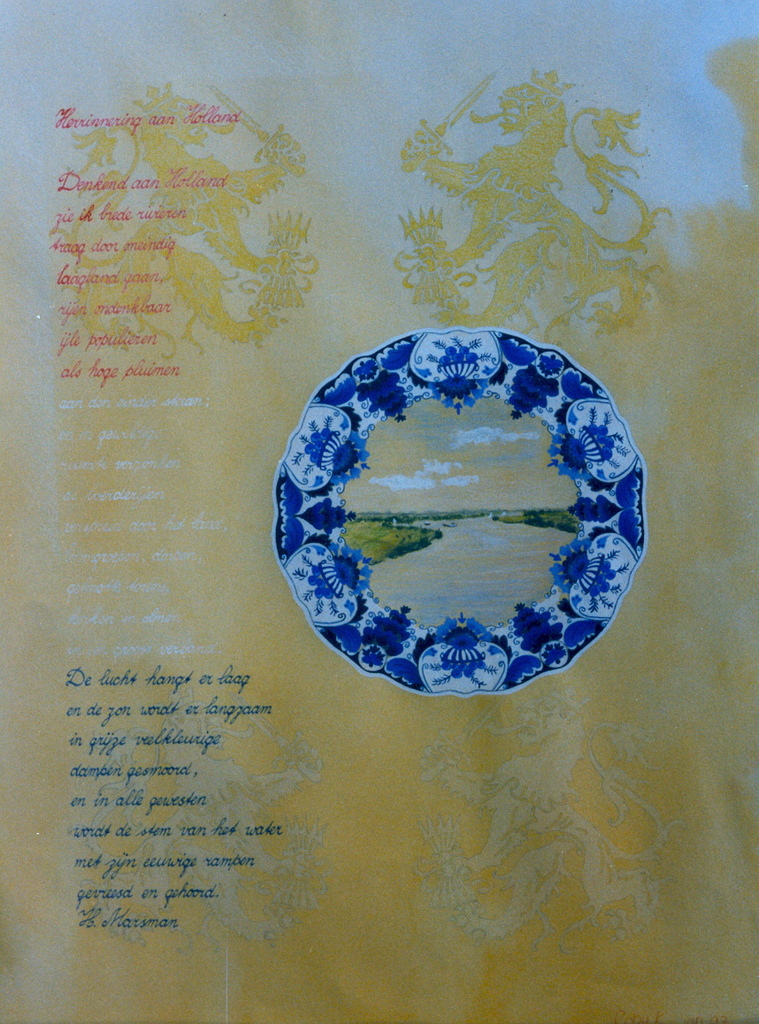 Herinnering aan Holland
Denkend aan Holland
zie ik brede rivieren
traag door oneindig
laagland gaan,
rijen ondenkbaar
ijle populieren
als hoge pluimen
aan den einder staan;
en in geweldige
ruimte verzonken
de boerderijen
verspreid door het land,
boomgroepen, dorpen,
geknotte torens,
kerken en olmen
in een groots verband.
De lucht hangt er laag
en de zon wordt er langzaam
in grijze veelkleurige
dampen gesmoord,
en in alle gewesten
wordt de stem van het water
met zijn eeuwige rampen
gevreesd en gehoord.
H. Marsman